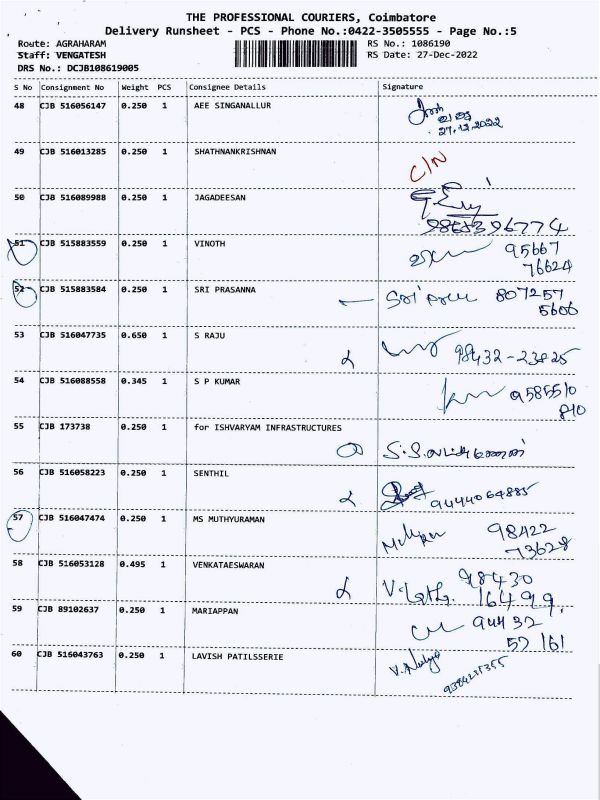 THE PROFESSIONAL COURIERS, Coimbatore
Delivery Runsheet - PCS - Phone No.:0422-3505555 - Page No.:5
Route: AGRAHARAM
Staff: VENGATESH
DRS No.: DCJB108619005
RS No.: 1086190
RS Date: 27-Dec-2022
S No Consignment No Weight PCS Consignee Details Signature
48 CJB 516056147 0.250 1 AEE SINGANALLUR
27.12.2022
49 CJB 516013285 0.250 1 SHATHNANKRISHNAN C/N
50 CJB 516089988 0.250 1 JAGADEESAN
51 CJB 515883559 0.250 1 VINOTH 95667
76624
52 CJB 515883584 0.250 1 SRI PRASANNA 807257
5606
53 CJB 516047735 0.650 1 S RAJU 98432-23825
54 CJB 516088558 0.345 1 S P KUMAR 9585510
810
55 CJB 173738 0.250 1 for ISHVARYAM INFRASTRUCTURES
56 CJB 516058223 0.250 1 SENTHIL 9444064885
57 CJB 516047474 0.250 1 MS MUTHYURAMAN 98422
73628
58 CJB 516053128 0.495 1 VENKATAESWARAN 98430
16499
59 CJB 89102637 0.250 1 MARIAPPAN 94432
57 161
60 CJB 516043763 0.250 1 LAVISH PATILSSERIE